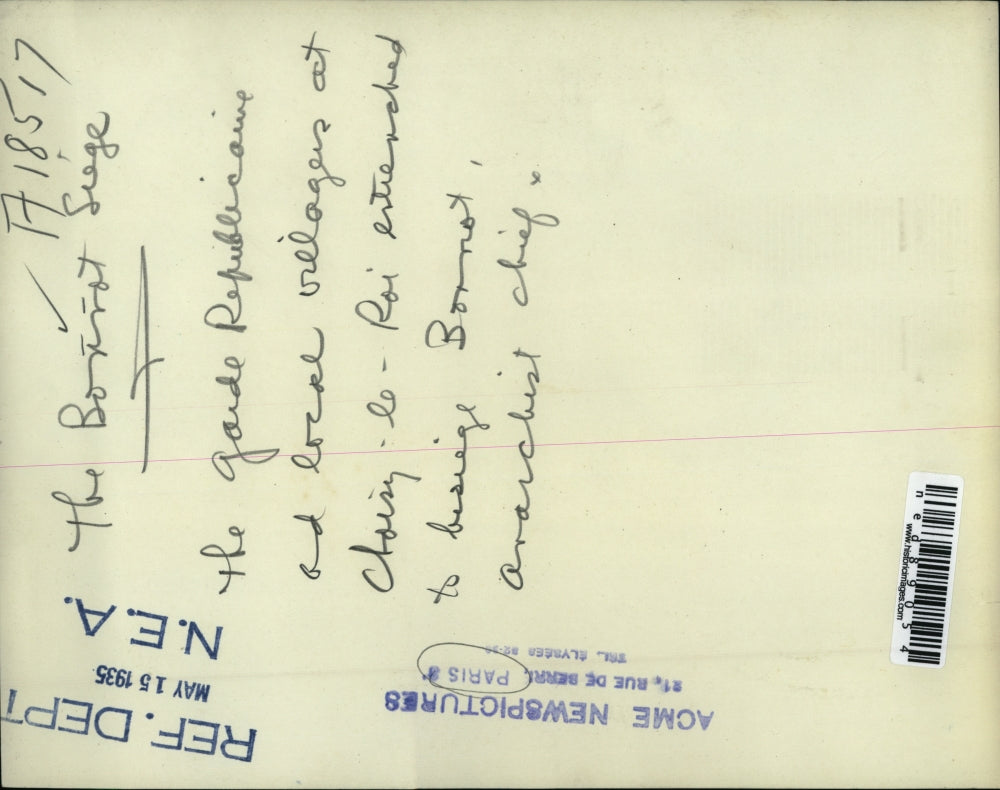 17 18517
The Bonnot Siege
the Garde Republicaine
and local villagers at
Choisy-le-Roi entrenched
to besiege Bonnot,
anarchist chief.
N.E.A.
MAY 15 1935
REF. DEPT
ACME NEWSPICTURES
21, RUE DE BERRI, PARIS 8
TEL. ÉLYSÉES
www.historicimages.com
ned89054